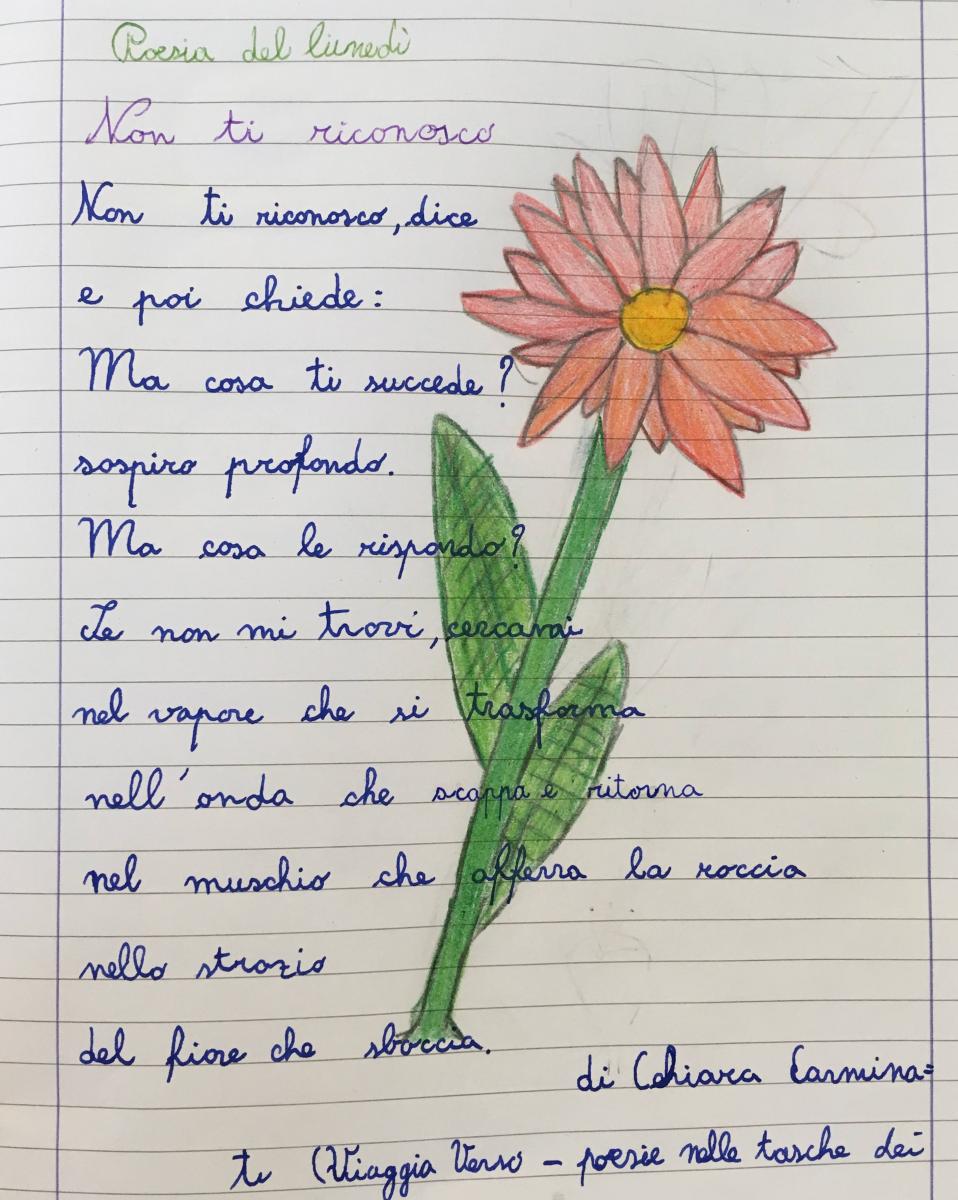 Poesia del lunedì
Non ti riconosco
Non ti riconosco, dice
e poi chiede:
Ma cosa ti succede?
sospiro profondo.
Ma cosa le rispondo?
Se non mi trovi, cercami
nel vapore che si trasforma
nell'onda che scappa e ritorna
nel muschio che afferra la roccia
nello strazio
del fiore che sboccia.
di Chiara Carmina=
ti (Viaggia Verso - poesie nelle tasche dei